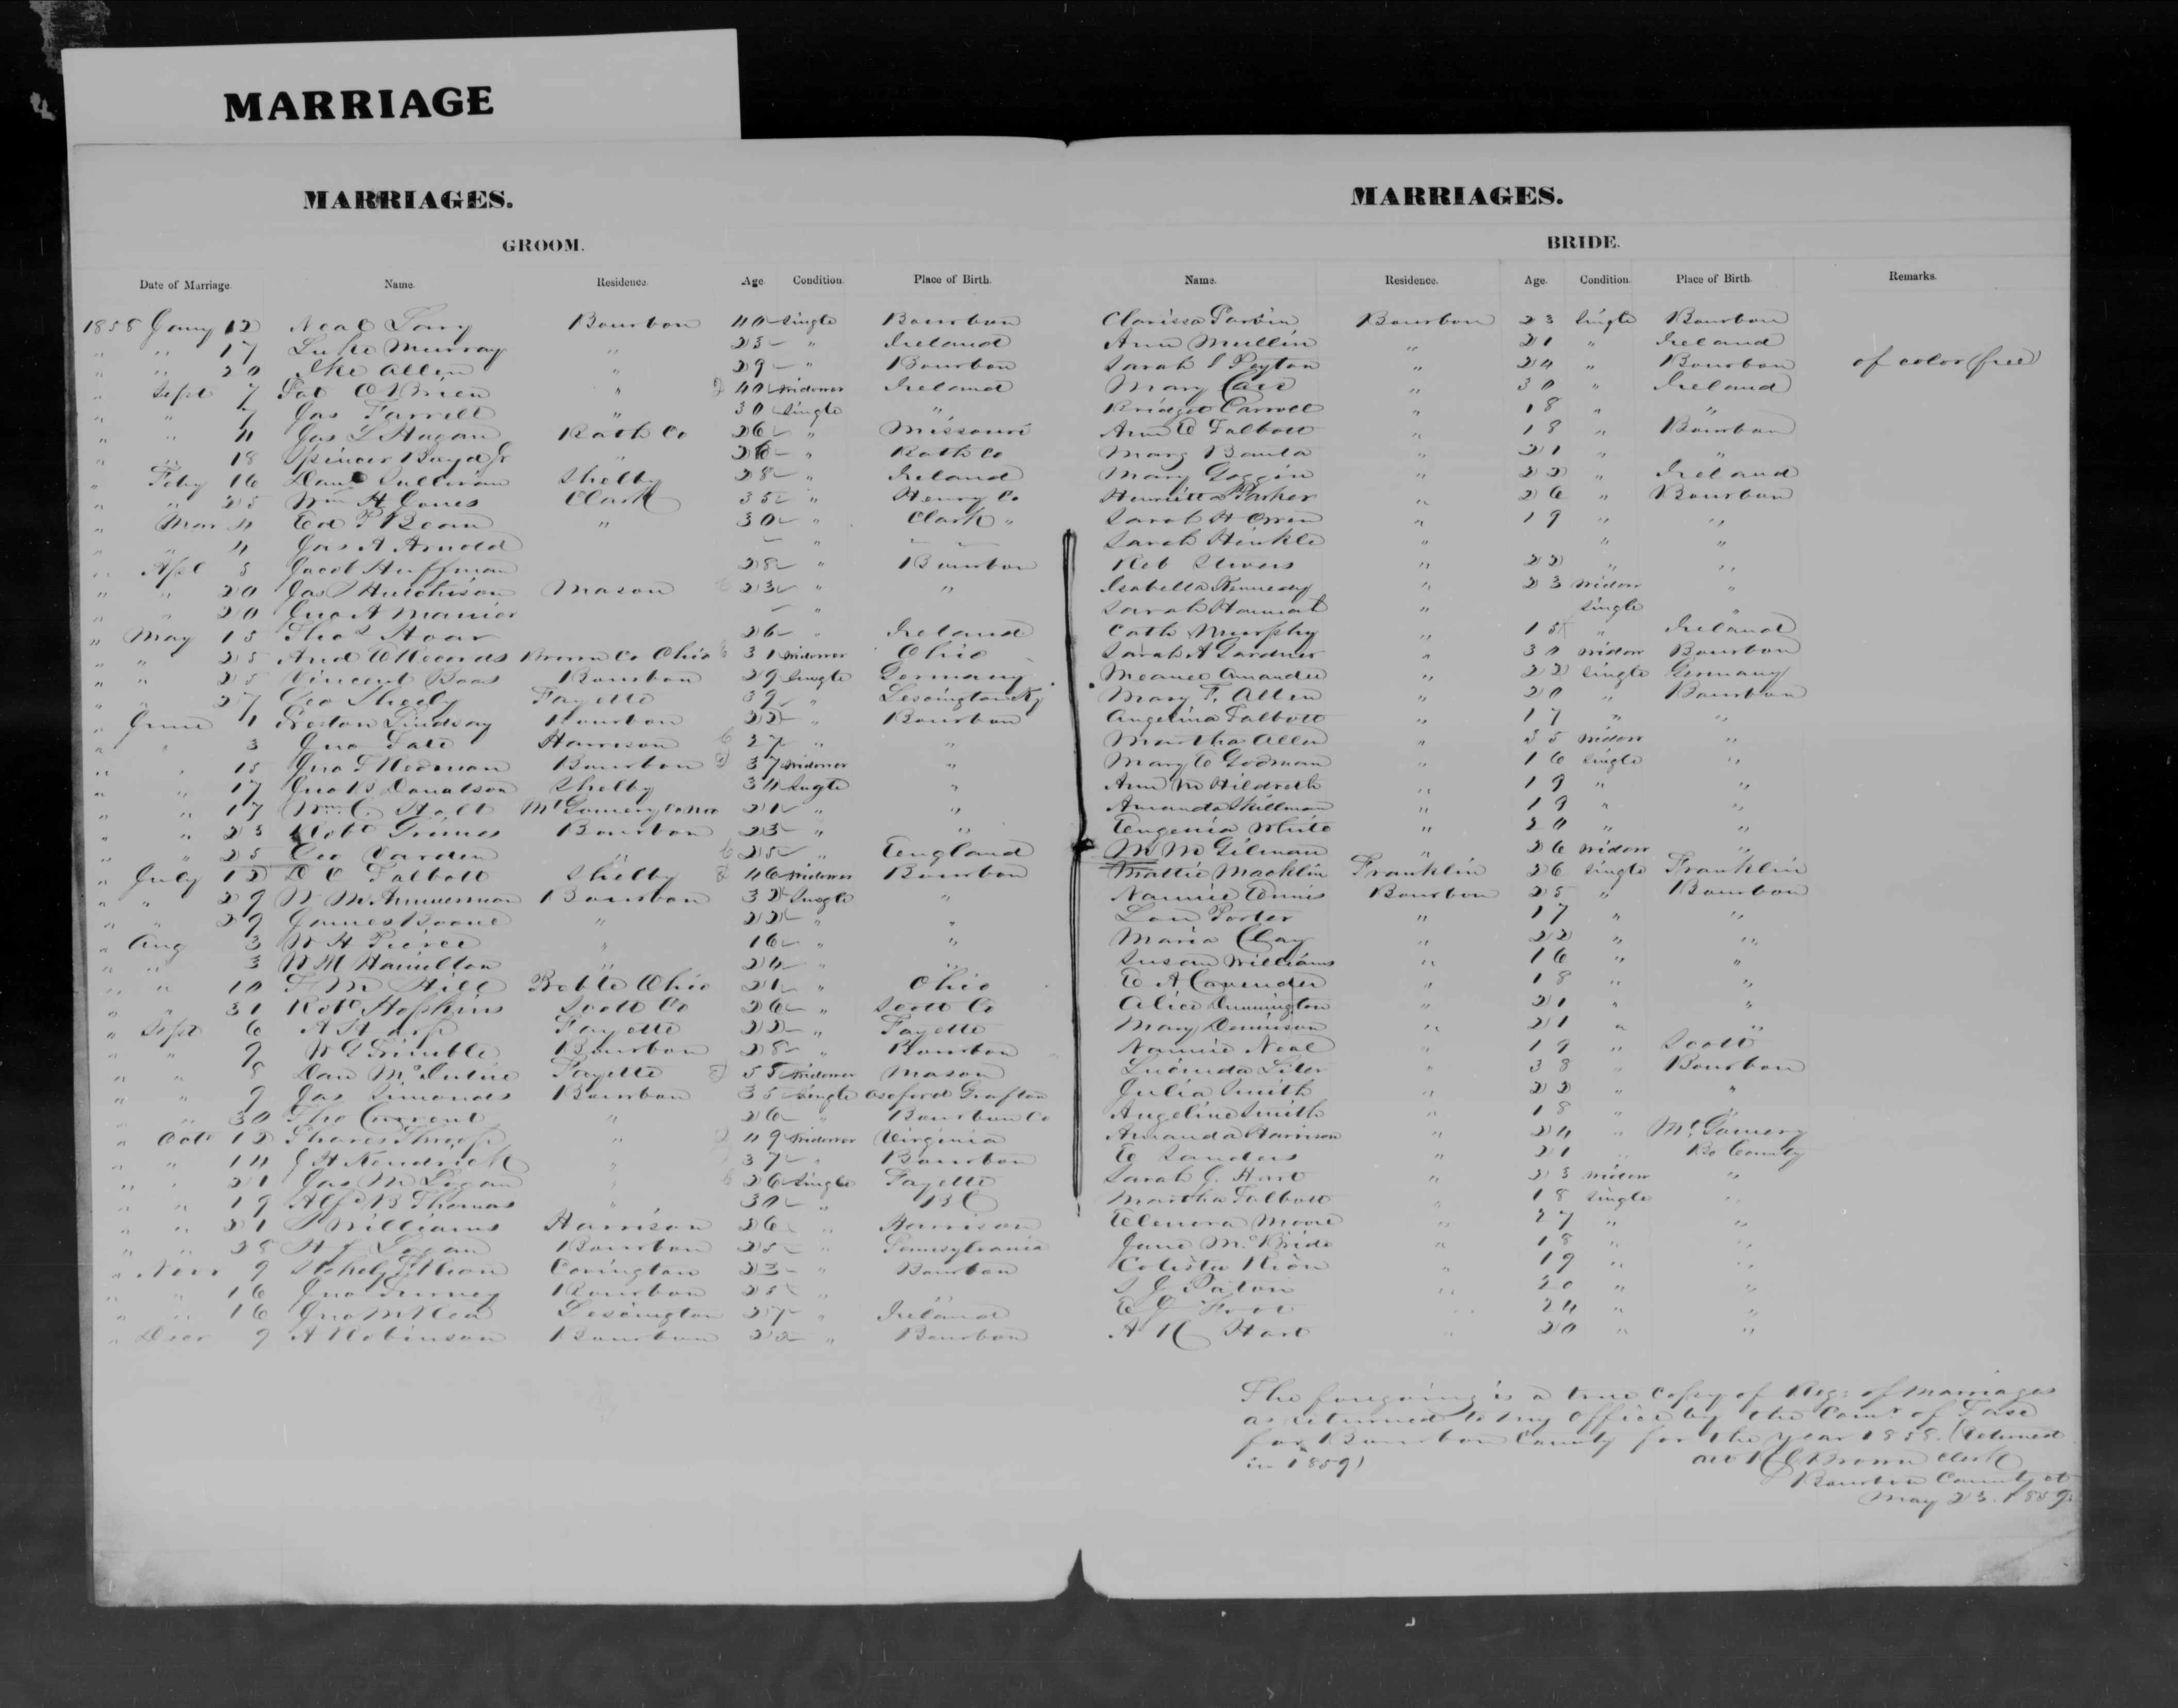 MARRIAGE
MARRIAGES. MARRIAGES.
GROOM. BRIDE.
Date of Marriage. Name. Residence. Age. Condition. Place of Birth. Name. Residence. Age. Condition. Place of Birth. Remarks.
1858 Jany 12 Neal Bourbon 40 Single Bourbon Clarissa Bourbon 23 Single Bourbon
" " 17 Luke Murray " 25 " Ireland Ann Mullin " 21 " Ireland
" " 20 Ike Allen " 29 " Bourbon Sarah Peyton " 24 " Bourbon of color (free)
" Sept 7 Pat O'Brien " 40 Widower Ireland Mary " 30 " Ireland
" " 7 Jas Farrell " 30 Single " Bridget Carroll " 18 " "
" " 11 Jas L Hagan Bath Co 26 " Missouri Ann E Talbott " 18 " Bourbon
" " 18 Spincer Boyd Jr " 26 " Bath Co Mary Banta " 21 " "
" Feby 16 Danl Sullivan Shelby 28 " Ireland Mary Goggin " 22 " Ireland
" " 25 Wm H Jones Clark 35 " Henry Co Henrietta Parker " 26 " Bourbon
" Mar 4 Ed P Bean " 30 " Clark " Sarah H Owen " 19 " "
" " 4 Jas A Arnold " Sarah Hinkle " " "
" Apl 8 Jacob Huffman 28 " Bourbon Reb Stivers " 22 " "
" " 20 Jas Hutchison Mason 23 " " Isabella Kennedy " 23 Widow "
" " 20 Jno A Manier " Sarah " Single "
" May 15 Thos Hoar 26 " Ireland Cath Murphy " 18 " Ireland
" " 25 And Records Brown Co Ohio 31 Widower Ohio Sarah A Gardner " 30 Widow Bourbon
" " 25 Vincent Baas Bourbon 29 Single Germany " 22 Single Germany
" " 27 Geo Sheely Fayette 39 " Lexington Ky Mary F. Allen " 20 " Bourbon
" June 1 Preston Lindsay Bourbon 22 " Bourbon Angelina Talbott " 17 " "
" " 3 Jno Tate Harrison 27 " " Martha Allen " 35 Widow "
" " 15 Jno Redmon Bourbon 37 Widower " Mary E Godman " 16 Single "
" " 17 Jno B Donalson Shelby 34 Single " Ann M Hildreth " 19 " "
" " 17 Wm C Holt Mt Gomery Co Mo 21 " " Amanda Skillman " 19 " "
" " 23 Robt Grimes Bourbon 23 " " Eugenia White " 20 " "
" " 25 Geo Varden " 25 " England M M Gilman " 26 Widow "
" July 12 D C Talbott Shelby 46 Widower Bourbon Mattie Macklin Franklin 26 Single Franklin
" " 29 W M Ammerman Bourbon 32 Single " Nannie Ennis Bourbon 25 " Bourbon
" " 29 James Boone " 22 " " Lou Porter " 17 " "
" Aug 3 W H Pierce " 16 " " Maria Clay " 22 " "
" " 3 W M Hamilton " 24 " " Susan Williams " 16 " "
" " 10 F M Hill Preble Ohio 21 " Ohio E A Cavender " 18 " "
" " 31 Robt Hopkins Scott Co 26 " Scott Co Alice Dunnington " 21 " "
" Sept 6 A Harp Fayette 22 " Fayette Mary Dennison " 21 " "
" " 9 W G Trimble Bourbon 28 " Bourbon Nannie Neal " 19 " Scott
" " 8 Dan McIntire Fayette 55 Widower Mason Lucinda Liter " 38 " Bourbon
" " 9 Jas Simonds Bourbon 35 Single Oxford Grafton Julia Smith " 22 " "
" " 30 Tho Current " 26 " Bourbon Co Angeline Smith " 18 " "
" Oct 12 Throop " 49 Widower Virginia Amanda Harrison " 24 " Mt Gomery
" " 14 J H Kendrick " 37 " Bourbon E Sanders " 21 " Bo County
" " 21 Jas M Logan " 26 Single Fayette Sarah J. Hart " 23 Widow "
" " 19 Alf B Thomas " 30 " B C Martha Talbott " 18 Single "
" " 21 Williams Harrison 26 " Harrison Elenora Moore " 27 " "
" " 28 Logan Bourbon 25 " Pennsylvania Jane McBride " 18 " "
" Novr 9 Covington 23 " Bourbon Rion " 19 " "
" " 16 Jno Turney Bourbon 25 " " S J Paton " 20 " "
" " 16 Jno M Rea Lexington 27 " Ireland E J " 24 " "
" Decr 9 A Robinson Bourbon 22 " Bourbon A K Hart " 20 " "
The foregoing is a true copy of Reg: of marriages
as returned to my office by the Comr of Tase
for Bourbon County for the year 1858. (Returned
in 1859) Brown Clerk
Bourbon County Ct
May 23. 1859